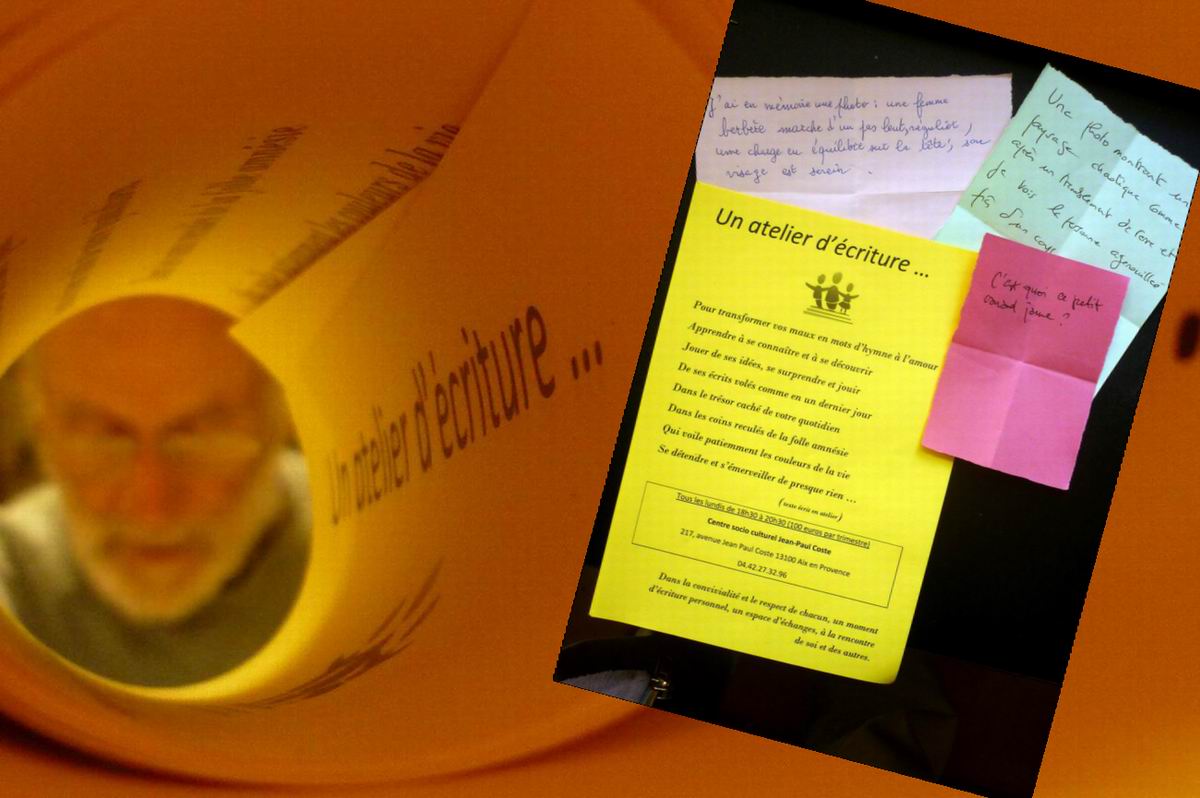 J'ai en mémoire une photo : une femme
berbère marche d'un pas lent, régulier,
une charge en équilibre sur la tête, son
visage est serein.
Une photo montrant un
paysage chaotique comme
après un tremblement de terre et
je vois
agenouillée
C'est quoi ce petit
canard jaune ?
Un atelier d'écriture ...
Pour transformer vos maux en mots d'hymne à l'amour
Apprendre à se connaître et à se découvrir
Jouer de ses idées, se surprendre et jouir
De ses écrits volés comme en un dernier jour
Dans le trésor caché de votre quotidien
Dans les coins reculés de la folle amnésie
Qui voile patiemment les couleurs de la vie
Se détendre et s'émerveiller de presque rien ...
(texte écrit en atelier)
Tous les lundis de 18h30 à 20h30 (100 euros par trimestre)
Centre socio culturel Jean-Paul Coste
217, avenue Jean Paul Coste 13100 Aix en Provence
04.42.27.32.96
Dans la convivialité et le respect de chacun, un moment
d'écriture personnel, un espace d'échanges, à la rencontre
de soi et des autres.
Un atelier d'écriture ...